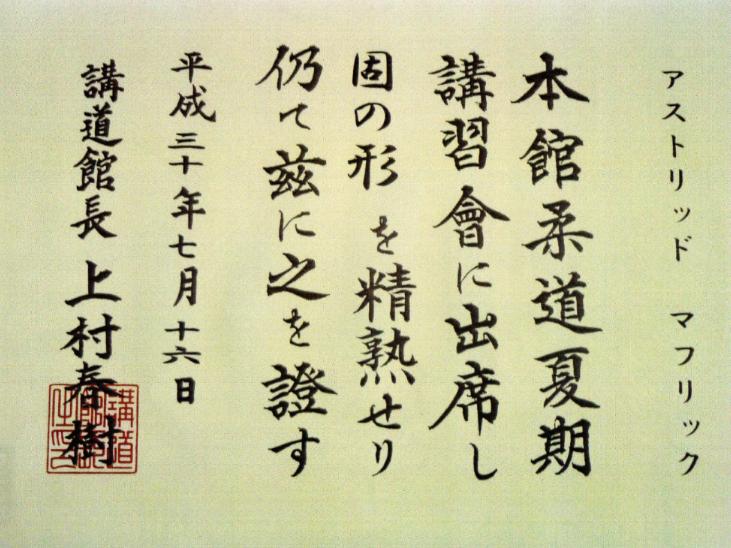 アストリッド　マフリック
本館柔道夏期
講習會に出席し
固の形を精熟せり
仍て茲に之を證す
平成三十年七月十六日
講道館長 上村春樹